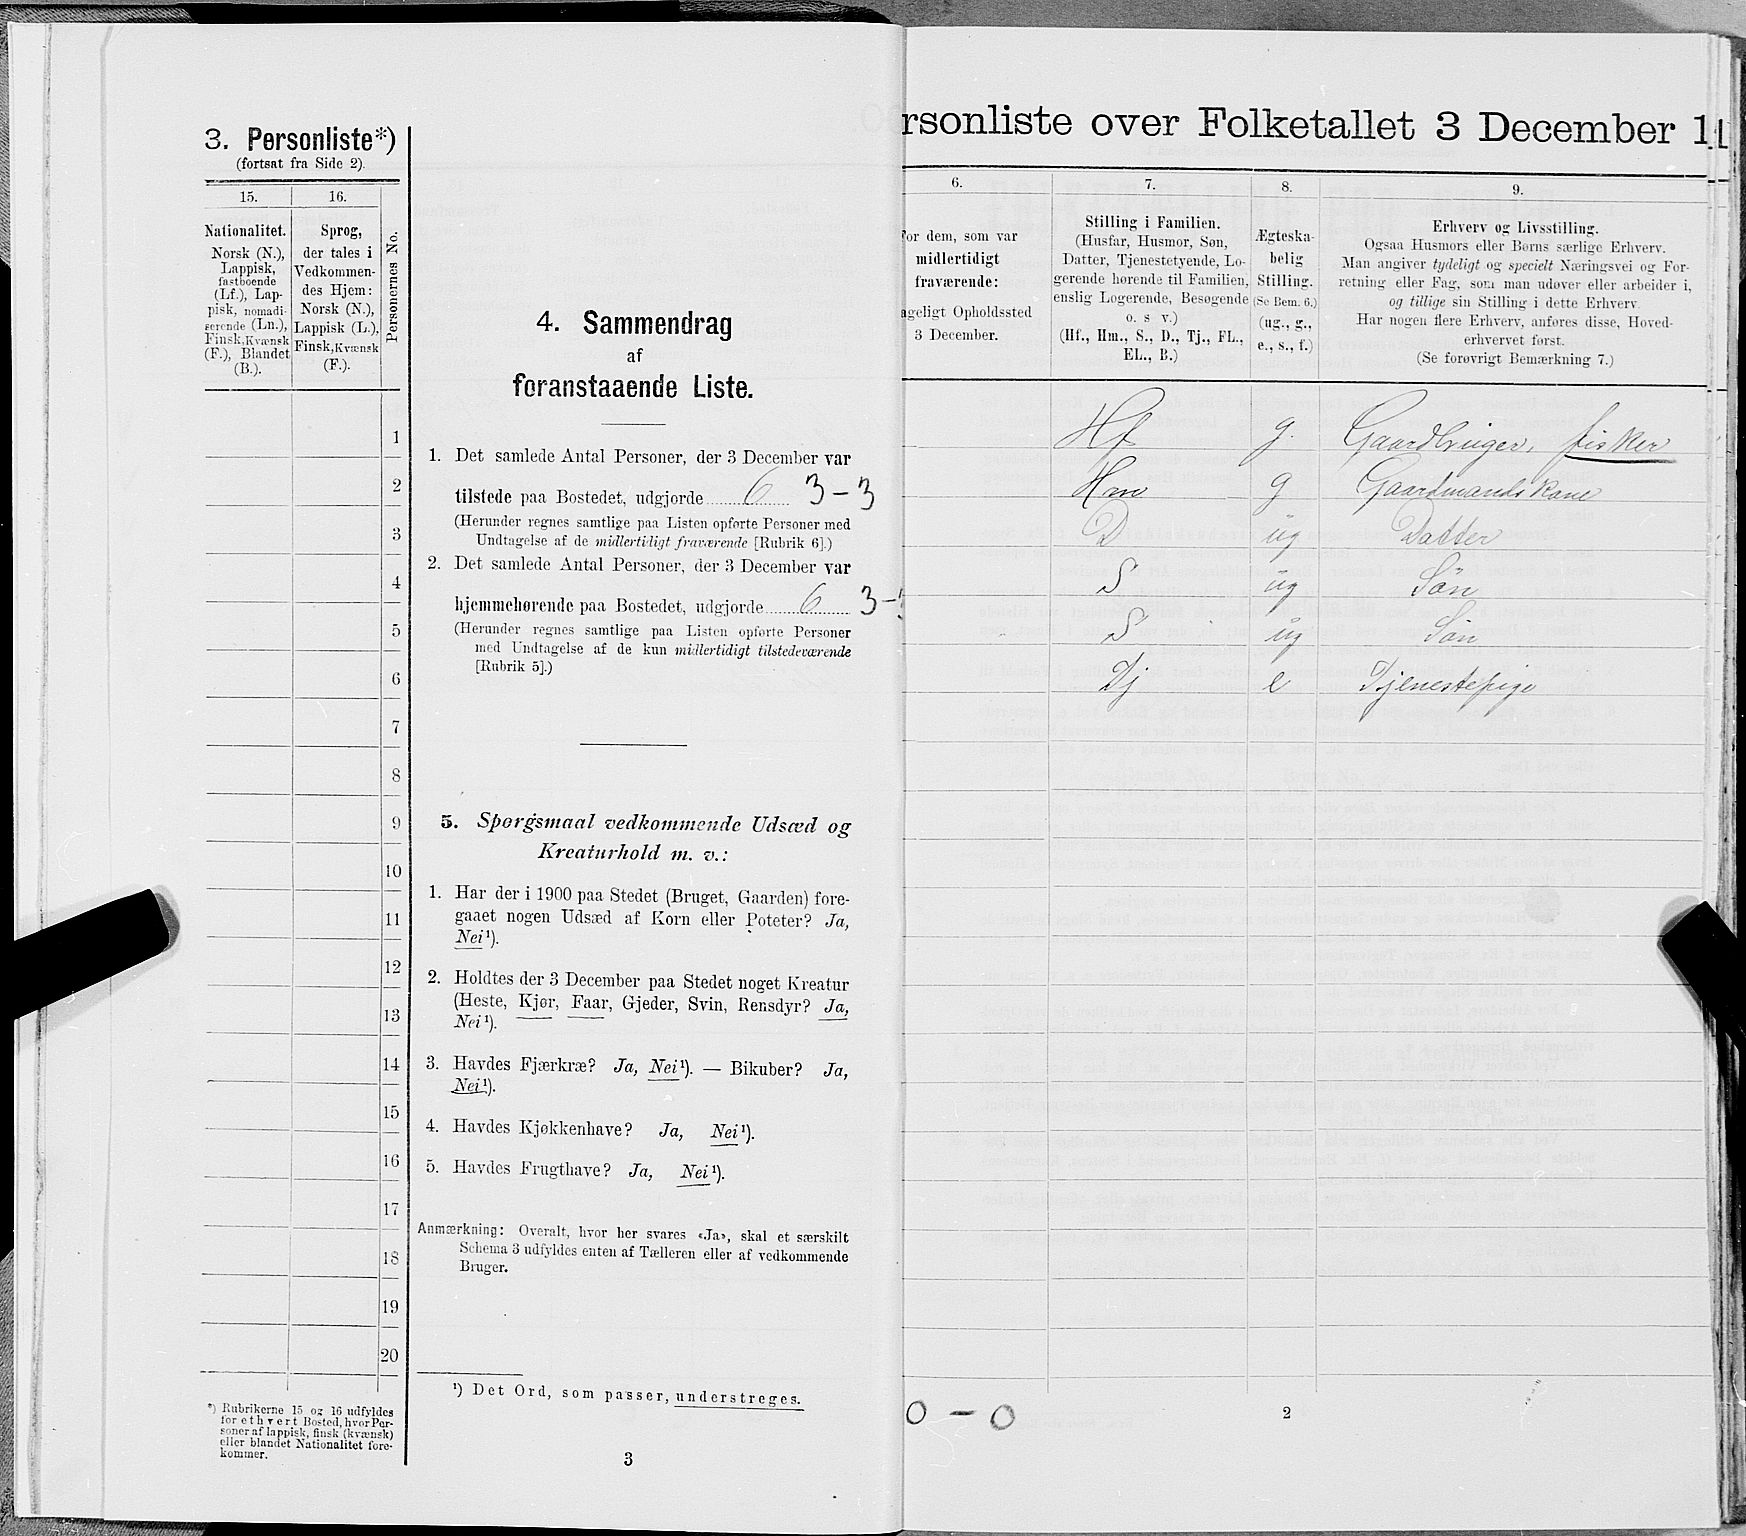 3. Personliste*)
(fortsat fra Side 2).
15.
16.
Personernes No.
Nationalitet.
Norsk (N.),
Lappisk,
fastboende
(Lf.), Lap-
pisk, nomadi-
serende (Ln.),
Finsk, Kvænsk
(F.), Blandet
(B.).
Sprog,
der tales i
Vedkommen-
des Hjem:
Norsk (N.),
Lappisk (L.),
Finsk, Kvænsk
(F.).
1
2
3
4
5
6
7
8
9
10
11
12
13
14
15
16
17
18
19
20
*) Rubrikerne 15 og 16 udfyldes
for ethvert Bosted, hvor Per-
soner af lappisk, finsk (kvænsk)
eller blandet Nationalitet fore-
kommer.
4. Sammendrag
af
foranstaaende Liste.
1. Det samlede Antal Personer, der 3 December var
tilstede paa Bostedet, udgjorde 6 3-3
(Herunder regnes samtlige paa Listen opførte Personer med
Undtagelse af de midlertidigt fraværende [Rubrik 6].)
2. Det samlede Antal Personer, der 3 December var
hjemmehørende paa Bostedet, udgjorde 6 3-
(Herunder regnes samtlige paa Listen opførte Personer
med Undtagelse af de kun midlertidigt tilstedeværende
[Rubrik 5].)
5. Spørgsmaal vedkommende Udsæd og
Kreaturhold m. v.:
1. Har der i 1900 paa Stedet (Bruget, Gaarden) fore-
gaaet nogen Udsæd af Korn eller Poteter? Ja,
Nei¹).
2. Holdtes der 3 December paa Stedet noget Kreatur
(Heste, Kjør, Faar, Gjeder, Svin, Rensdyr? Ja,
Nei¹).
3. Havdes Fjærkræ? Ja, Nei¹). — Bikuber? Ja,
Nei¹).
4. Havdes Kjøkkenhave? Ja, Nei¹).
5. Havdes Frugthave? Ja, Nei¹).
Anmærkning: Overalt, hvor her svares «Ja», skal et særskilt
Schema 3 udfyldes enten af Tælleren eller af vedkommende
Bruger.
¹) Det Ord, som passer, understreges.
3
rsonliste over Folketallet 3 December 1
6.
7.
8.
9.
For dem, som var
midlertidigt
fraværende:
ageligt Opholdssted
3 December.
Stilling i Familien.
(Husfar, Husmor, Søn,
Datter, Tjenestetyende, Lo-
gerende hørende til Familien,
enslig Logerende, Besøgende
o. s v.)
(Hf., Hm., S., D., Tj., FL.,
EL., B.)
Ægteska-
belig
Stilling.
(Se Bem. 6.)
(ug., g.,
e., s., f.)
Erhverv og Livsstilling.
Ogsaa Husmors eller Børns særlige Erhverv.
Man angiver tydeligt og specielt Næringsvei og For-
retning eller Fag, som man udøver eller arbeider i,
og tillige sin Stilling i dette Erhverv.
Har nogen flere Erhverv, anføres disse, Hoved-
erhvervet først.
(Se forøvrigt Bemærkning 7.)
Hf g. Gaardbruger, fisker
Hm g Gaardmandskone
D ug Datter
S ug Søn
S ug Søn
Tj e Tjenestepige
0 - 0
2